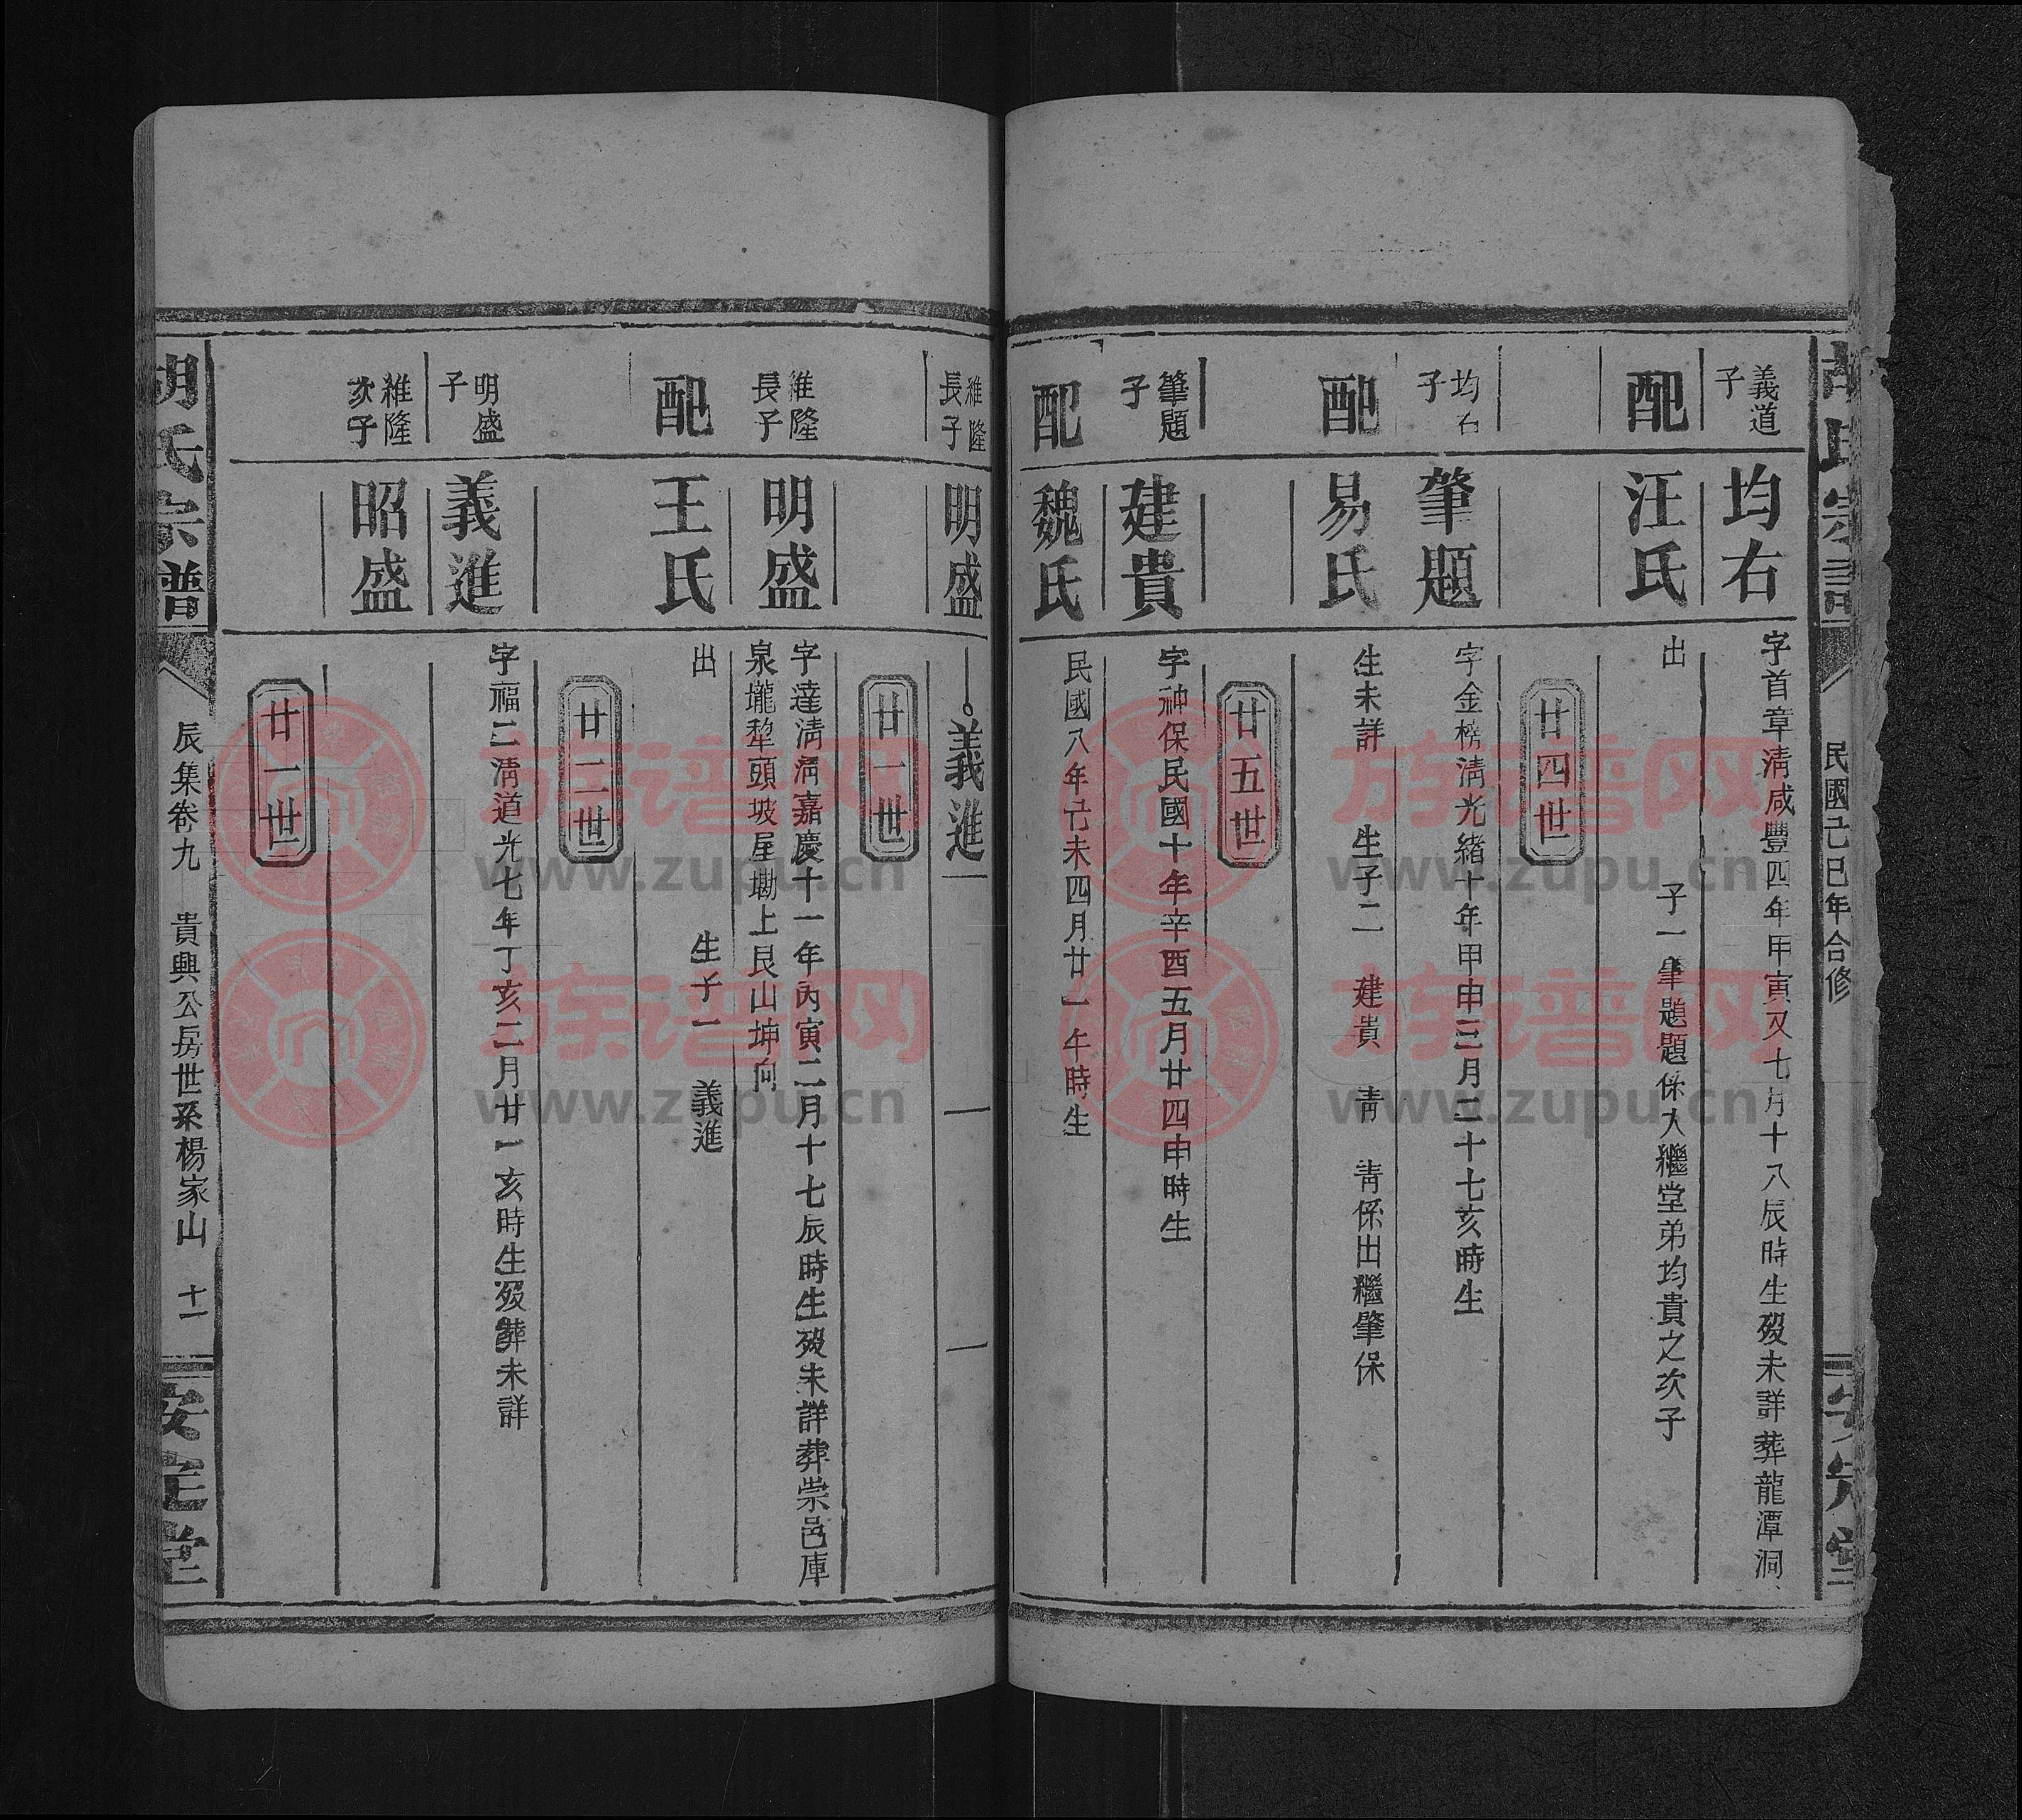 胡氏宗譜
民國己巳年合修
安定堂
義道子
均右
字首章清咸豐四年甲寅又七月十八辰時生歿未詳葬龍潭洞
配
汪氏
出 子一肇題題係入繼堂弟均貴之次子
廿四世
均右子
肇題
字金榜清光緒十年甲申三月二十七亥時生
配
易氏
生未詳 生子二 建貴 青 青係出繼肇保
廿五世
肇題子
建貴
字神保民國十年辛酉五月廿四申時生
配
魏氏
民國八年己未四月廿一午時生
維隆長子
明盛
義進
廿一世
維隆長子
明盛
字達清清嘉慶十一年丙寅二月十七辰時生歿未詳葬崇邑庫
泉壠犁頭坡屋墈上艮山坤向
配
王氏
出 生子一 義進
廿二世
明盛子
義進
字福二清道光七年丁亥二月廿一亥時生歿葬未詳
維隆次子
昭盛
廿一世
胡氏宗譜
辰集卷九 貴興公房世系楊家山 十一
安定堂
族谱网
www.zupu.cn
族谱网
www.zupu.cn
族谱网
www.zupu.cn
族谱网
www.zupu.cn